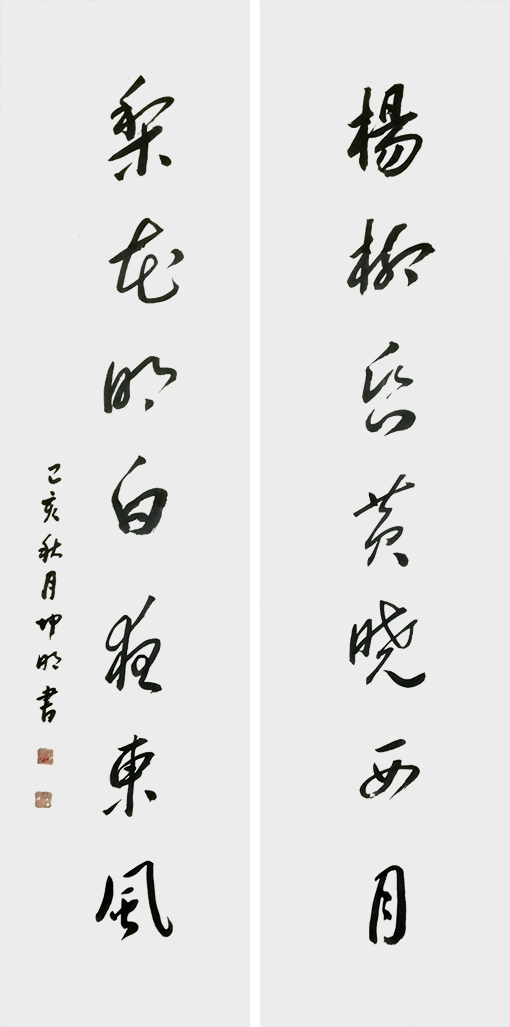 楊柳昏黄曉西月
梨花明白夜東風
己亥秋月坤明書